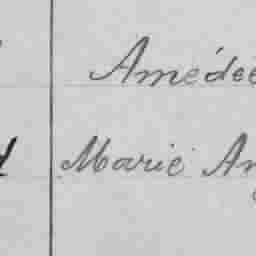 Amédée
Marie An